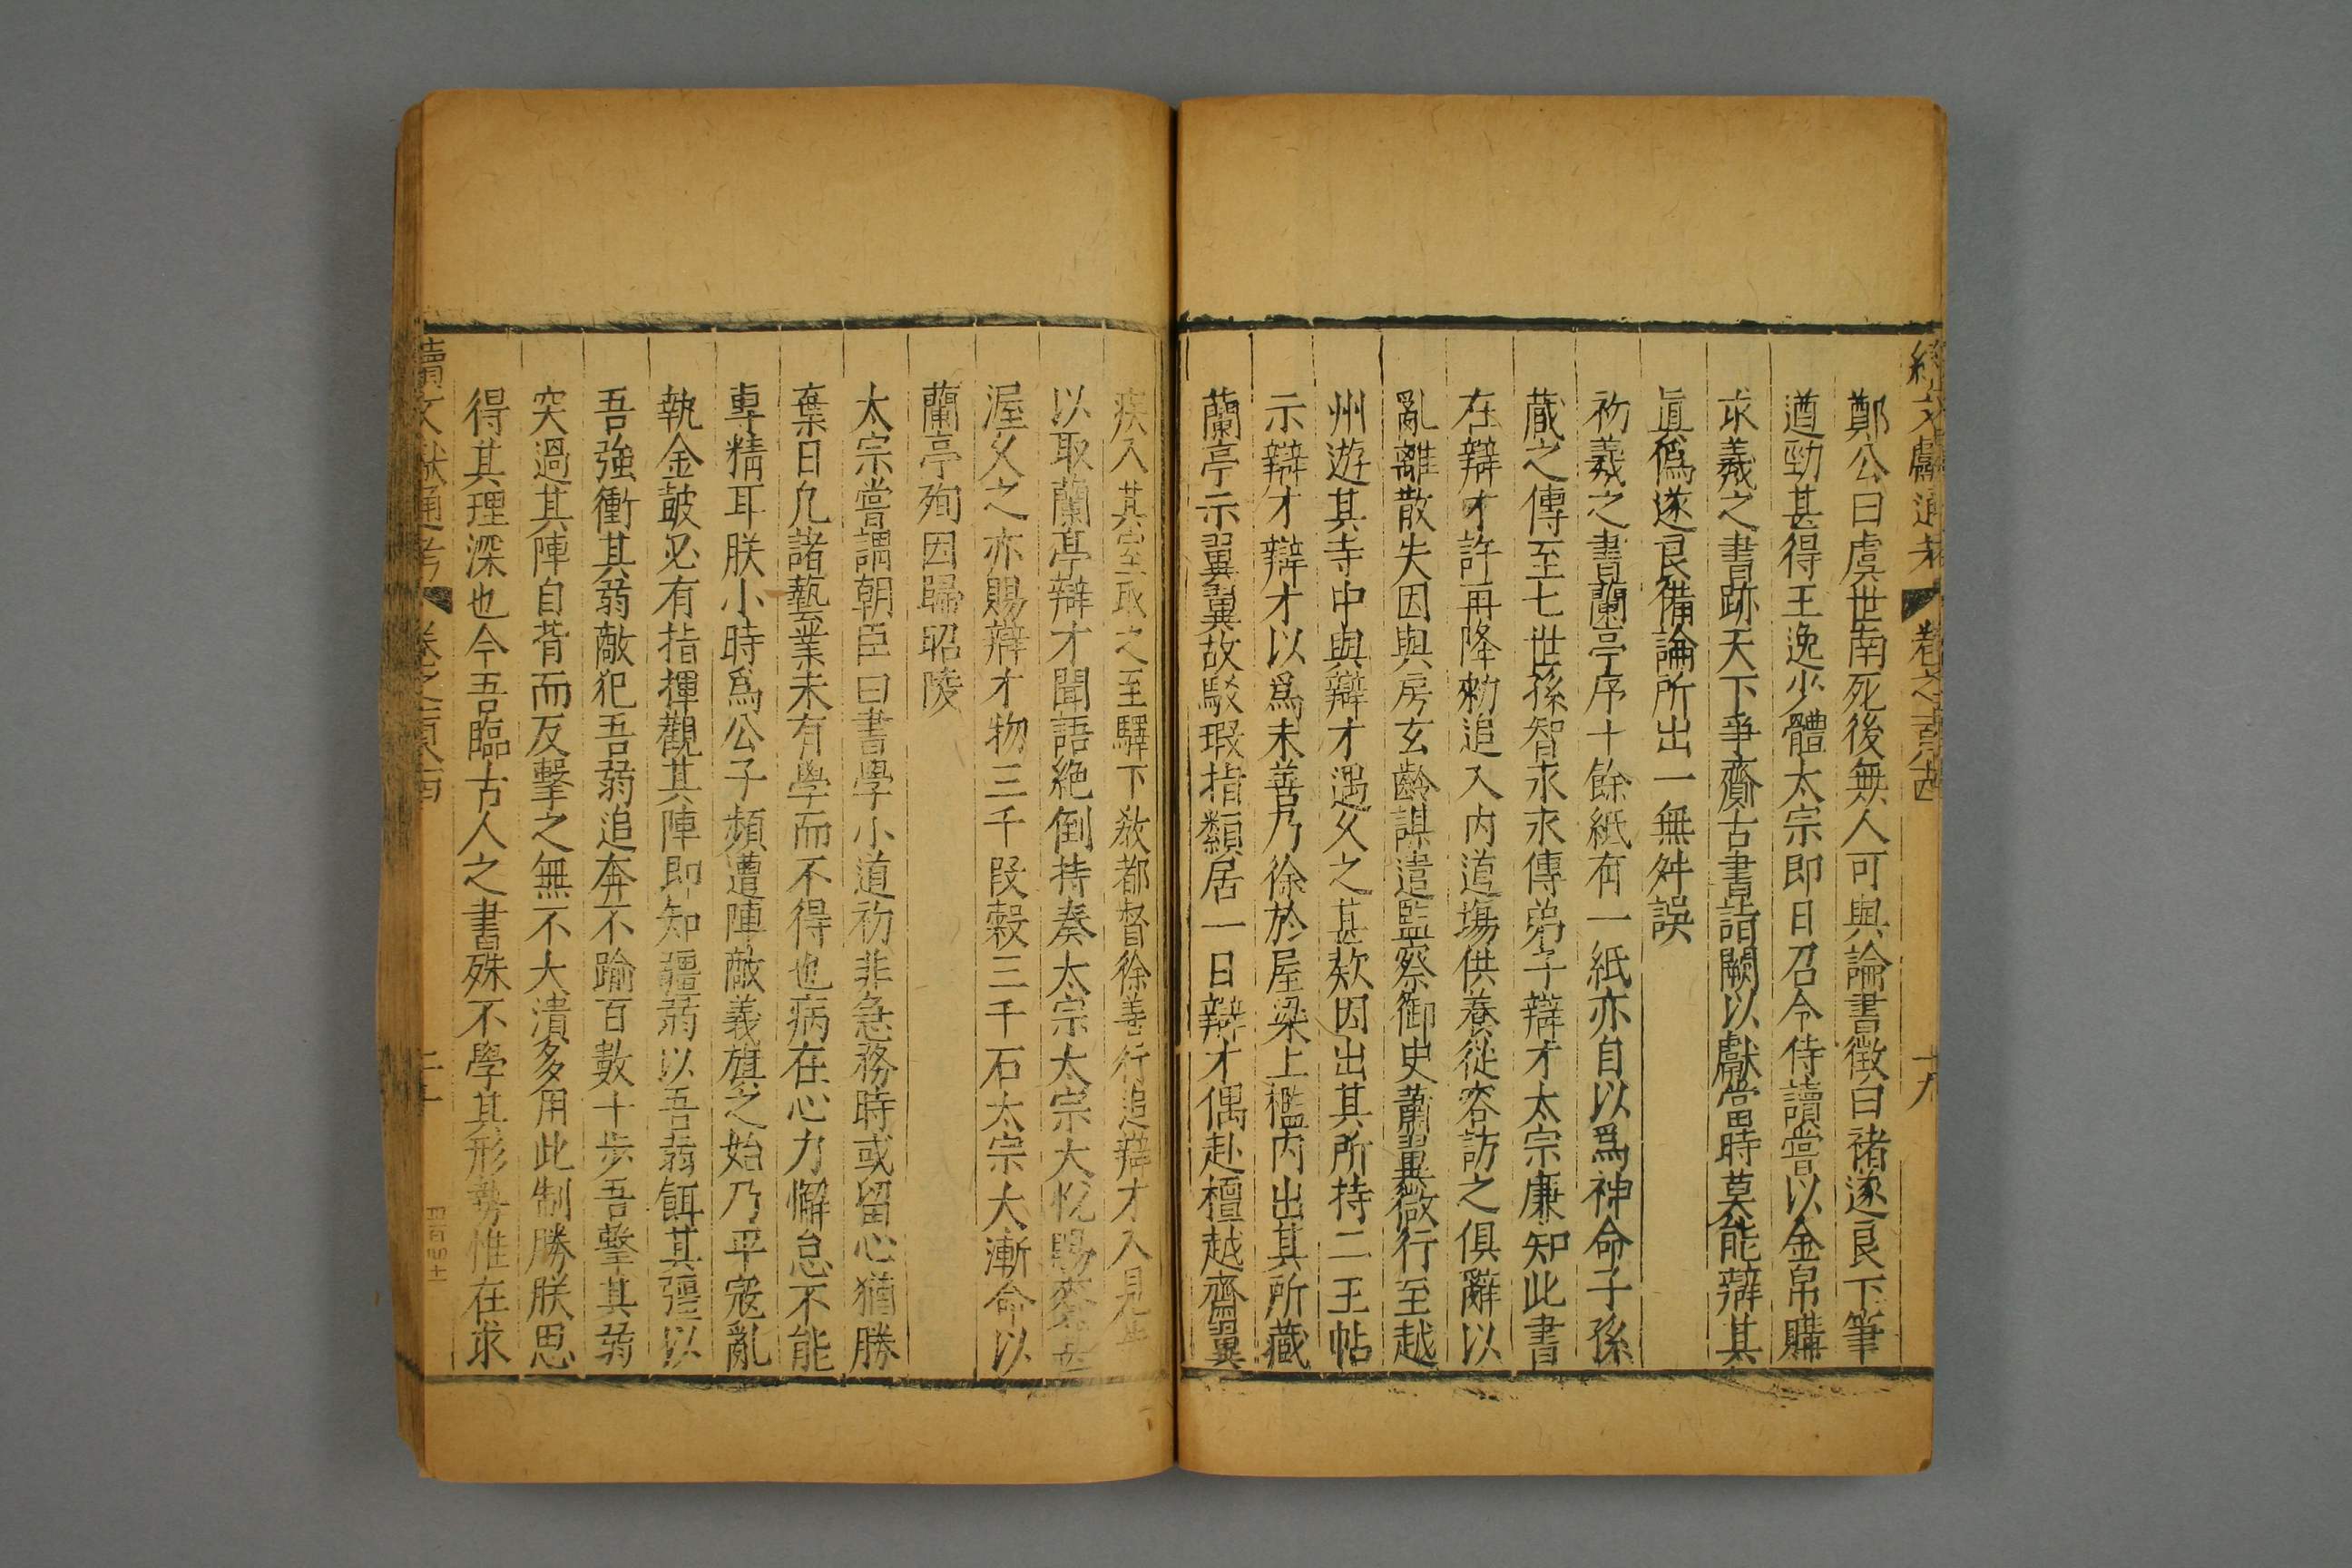 續文獻通考 卷之一百八十四 十九
鄭公曰虞世南死後無人可與論書徵曰褚遂良下筆
遒勁甚得王逸少體太宗即日召令侍讀嘗以金帛購
求羲之書跡天下爭齎古書詣闕以獻當時莫能辯其
眞僞遂良備論所出一無舛誤
初羲之書蘭亭序十餘紙有一紙亦自以爲神命子孫
藏之傳至七世孫智永永傳弟子辯才太宗廉知此書
在辯才許再降勑追入內道場供養從容訪之俱辭以
亂離散失因與房玄齡謀遣監察御史蕭翼微行至越
州遊其寺中與辯才遇久之甚欵因出其所持二王帖
示辯才辯才以爲未善乃徐於屋梁上檻內出其所藏
蘭亭示翼翼故駁瑕指纇居一日辯才偶赴檀越齋翼
疾入其室取之至驛下敕都督徐善行追辯才入見
以取蘭亭辯才聞語絶倒持奏太宗太宗大悅賜
渥久之亦賜辯才物三千段穀三千石太宗大漸命以
蘭亭殉因歸昭陵
太宗嘗謂朝臣曰書學小道初非急務時或留心猶勝
棄日凢諸藝業未有學而不得也病在心力懈怠不能
專精耳朕小時爲公子頻遭陣敵義旗之始乃平寇亂
執金皷必有指揮觀其陣即知疆弱以吾弱餌其彊以
吾強衝其弱敵犯吾弱追奔不踰百數十步吾擊其弱
突過其陣自背而反擊之無不大潰多用此制勝朕思
得其理深也今吾臨古人之書殊不學其形勢惟在求
續文獻通考